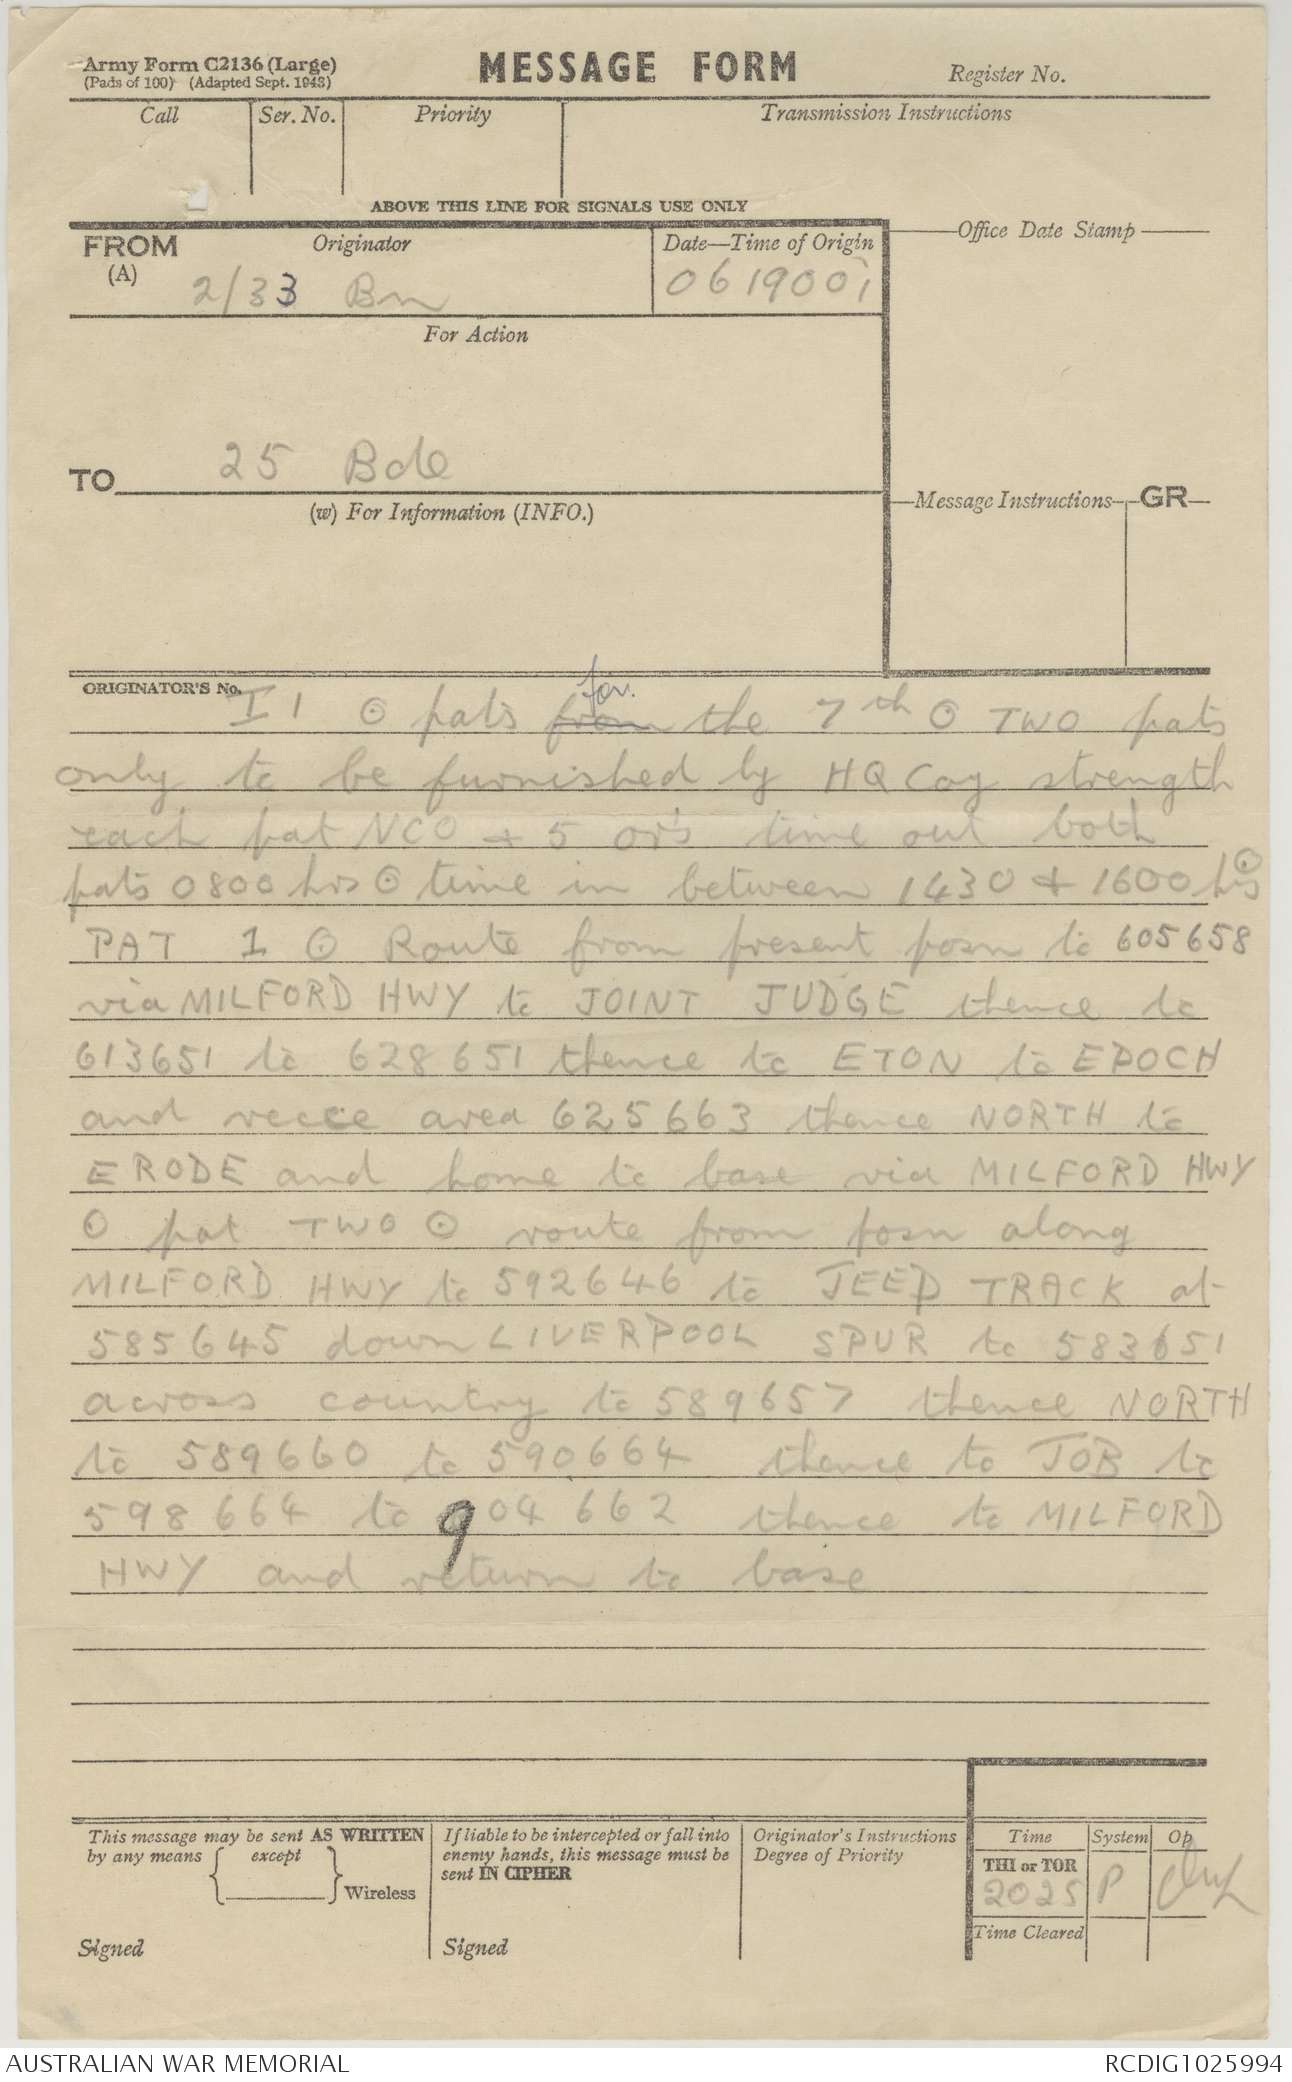 Army Form C2136 (Large)
(Pads of 100) (Adapted Sept. 1943)
MESSAGE FORM
Register No.
Call
Ser. No.
Priority
Transmission Instructions
ABOVE THIS LINE FOR SIGNALS USE ONLY
FROM
(A)
Originator
2/33 Bn
Date—Time of Origin
061900i
Office Date Stamp
For Action
TO
25 Bde
(w) For Information (INFO.)
Message Instructions
GR
ORIGINATOR'S No.
for.
I 1 ⊙ pats from the 7th ⊙ TWO pats
only to be furnished by HQ Coy strength
each pat NCO + 5 or's time out both
pats 0800 hrs ⊙ time in between 1430 + 1600 hrs ⊙
PAT 1 ⊙ Route from present posn to 605658
via MILFORD HWY to JOINT JUDGE thence to
613651 to 628651 thence to ETON to EPOCH
and recce area 625663 thence NORTH to
ERODE and home to base via MILFORD HWY
⊙ pat TWO ⊙ route from posn along
MILFORD HWY to 592646 to JEEP TRACK at
585645 down LIVERPOOL SPUR to 583651
across country to 589657 thence NORTH
to 589660 to 590664 thence to JOB to
598664 to 904662 thence to MILFORD
HWY and return to base
This message may be sent AS WRITTEN
by any means except
Wireless
Signed
If liable to be intercepted or fall into
enemy hands, this message must be
sent IN CIPHER
Signed
Originator's Instructions
Degree of Priority
Time
System
Op
THI or TOR
2025
P
Time Cleared
AUSTRALIAN WAR MEMORIAL
RCDIG1025994